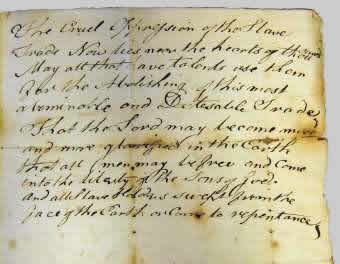 The Cruel Oppression of the Slave
Trade Now lies near the hearts of this
May all that have talends use them
for the Abolishing of this most
abominable and Detesable Trade
That the Lord may become more
and more glorified in the Earth
that all men may be free and Come
into the liberty of the Sons of god
and all Slave holders swept from the
face of the Earth or Come to repentance